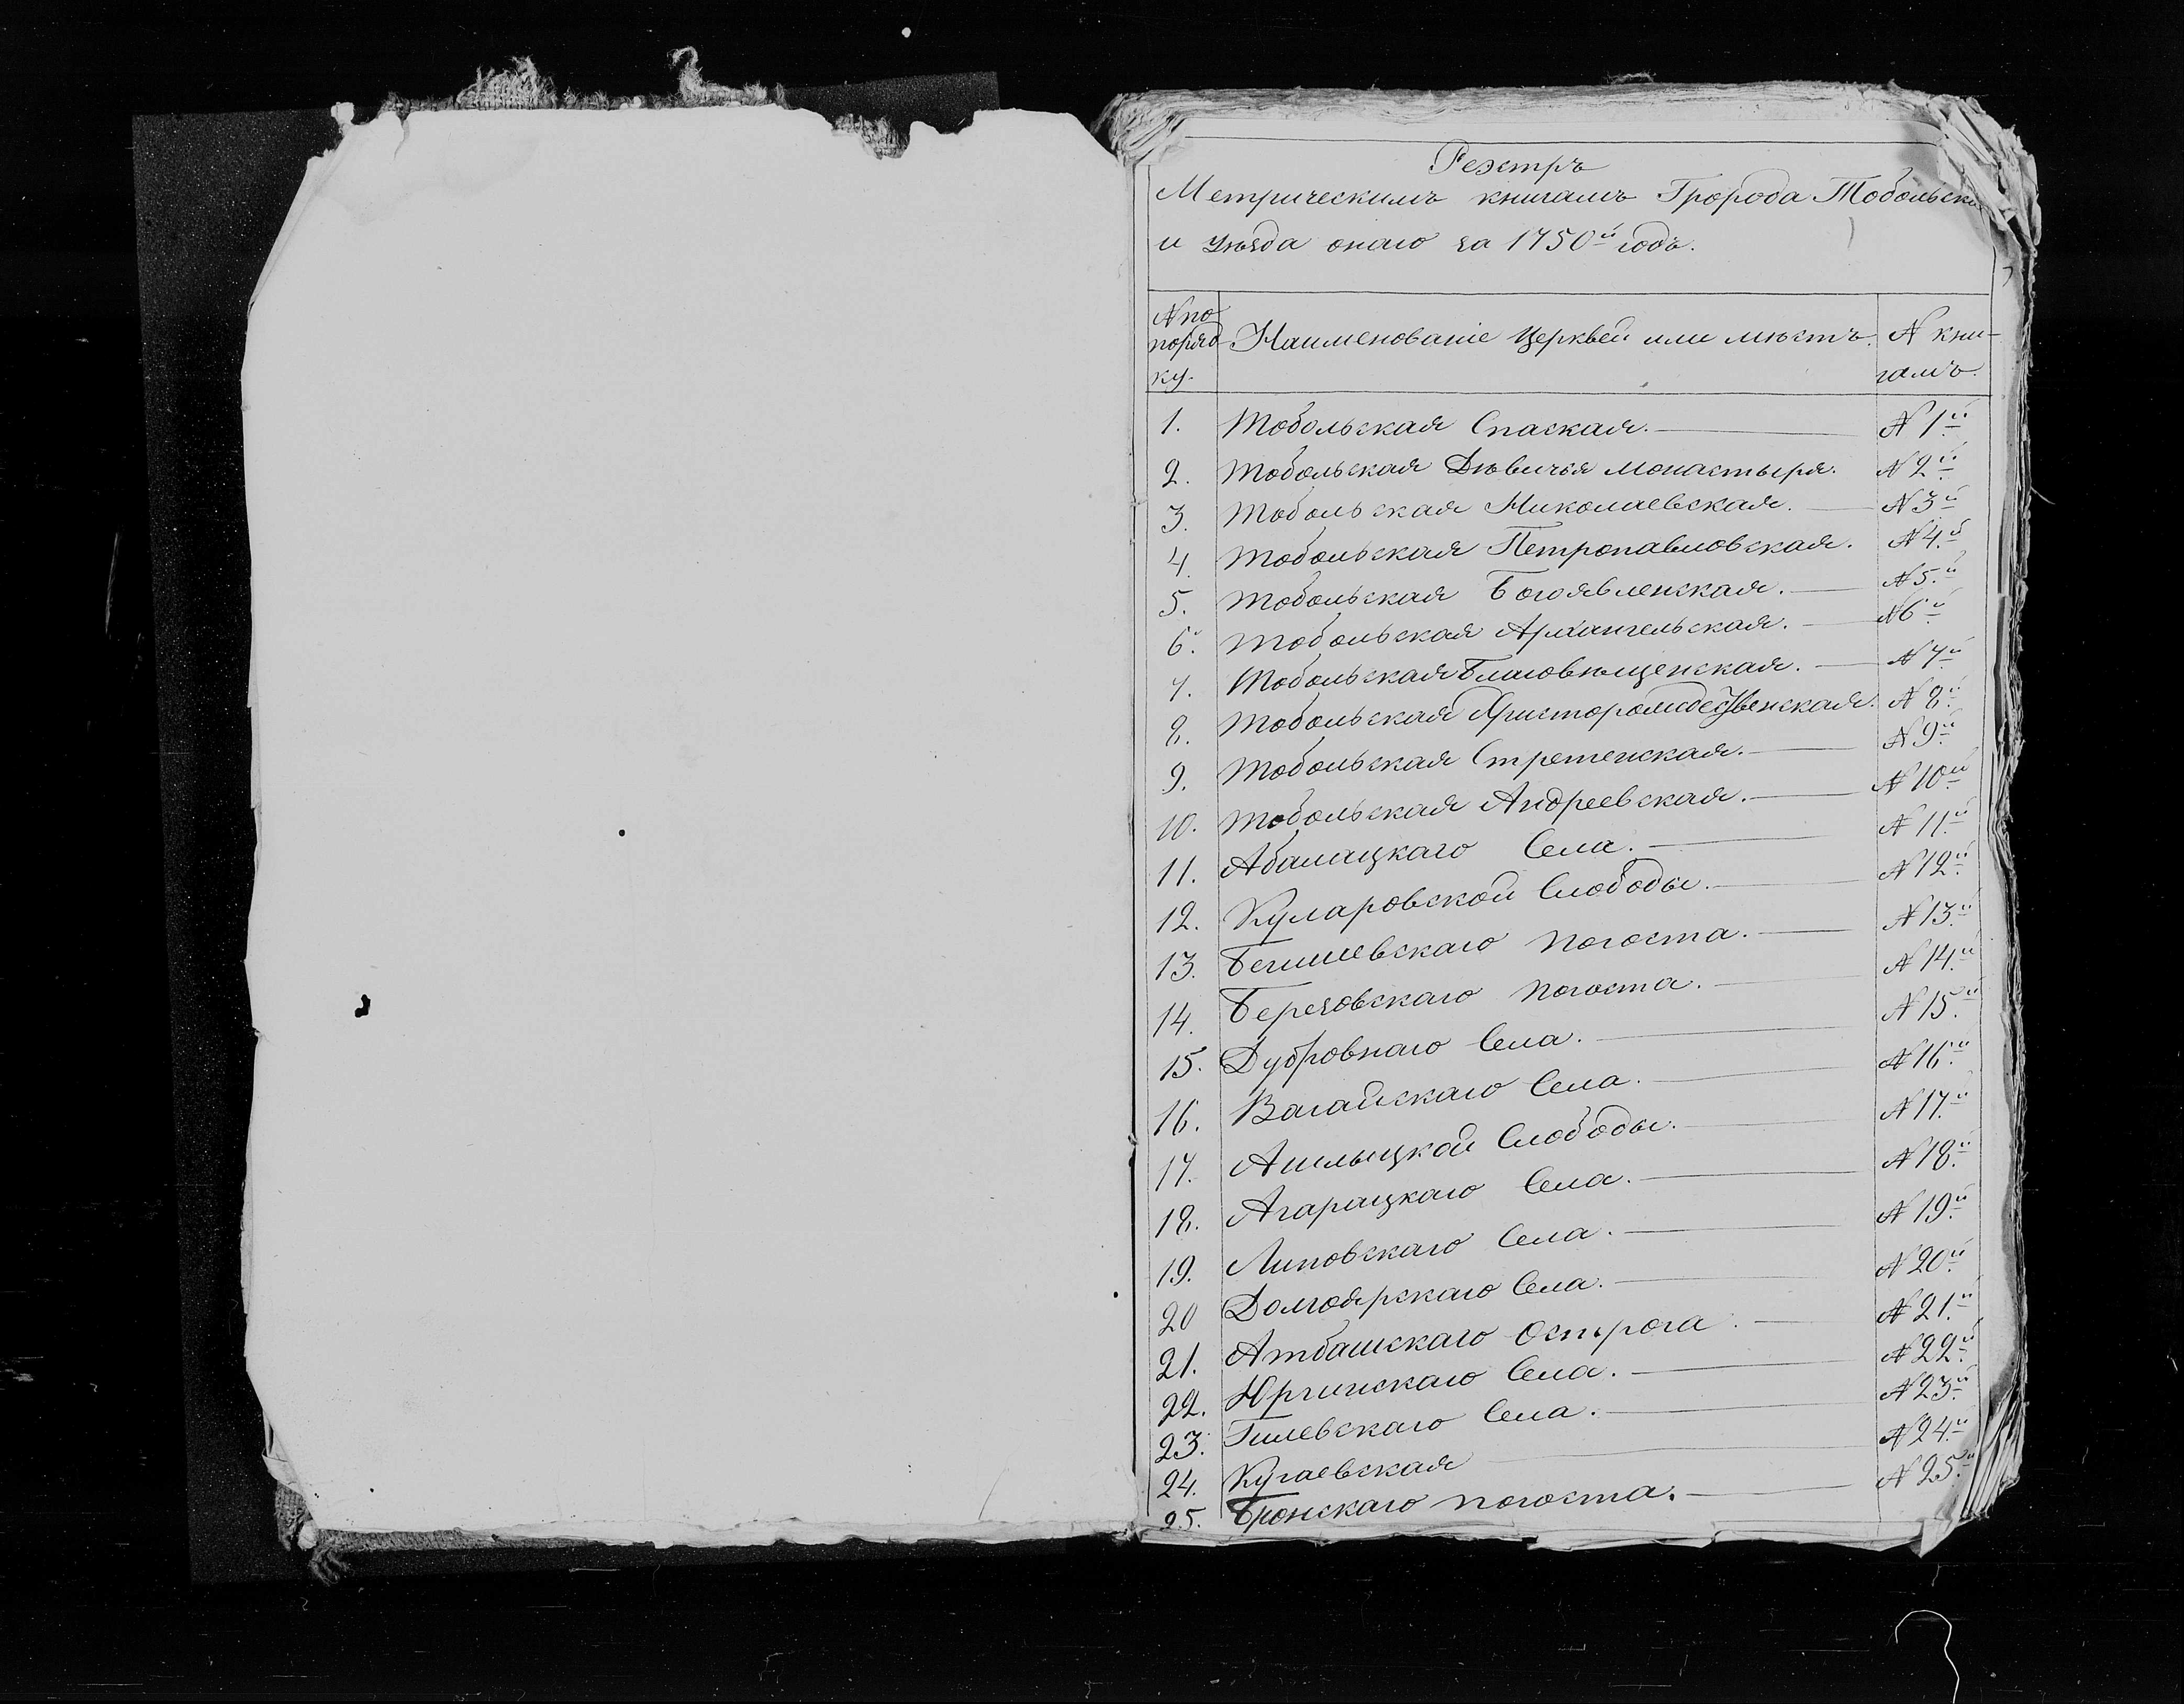 Реэстръ
Метрическимъ книгамъ Гророда Тобольска
и уѣзда онаго за 1750й годъ.
N по поряд ку. Наименованіе Церквей или мѣстъ. N кни-гамъ.
1. Тобольская Спаская. N 1й
2. Тобольская Дѣвичья монастыря. N 2й
3. Тобольская Николаевская. N 3й
4. Тобольская Петропавловская. N 4й
5. Тобольская Богоявленская. N 5й
6. Тобольская Архангельская. N 6й
7. Тобольская Благовѣщенская. N 7й
8. Тобольская Христорождественская. N 8й
9. Тобольская Стретенская. N 9й
10. Тобольская Андреевская. N 10й
11. Абалацкаго Села. N 11й
12. Куларовской Слободы. N 12й
13. Бегишевскаго погоста. N 13й
14. Березовскаго погоста. N 14й
15. Дубровнаго Села. N 15й
16. Вагайскаго Села. N 16й
17. Ашлыцкой Слободы. N 17й
18. Агарацкаго Села. N 18й
19. Липовскаго Села. N 19й
20 Долгоярскаго Села. N 20й
21. Атбашскаго Острога. N 21й
22. Юргинскаго Села. N 22й
23. Гилевскаго Села. N 23й
24. Кугаевская N 24й
25. Бронскаго погоста. N 25й